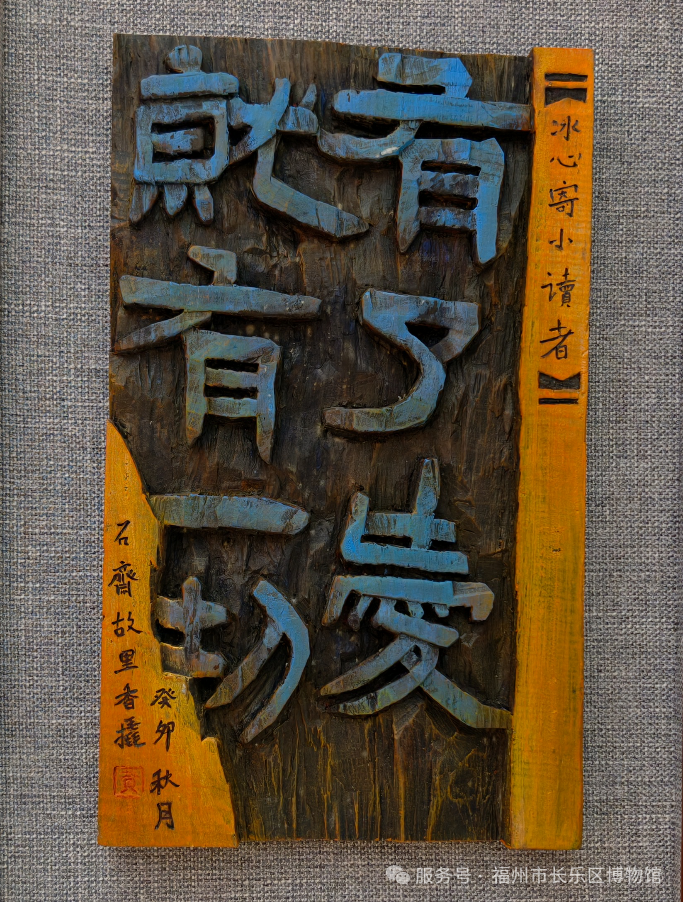 【冰心寄小讀者】
有了愛
就有一切
癸卯秋月
石齋故里香攥
服务号·福州市长乐区博物馆